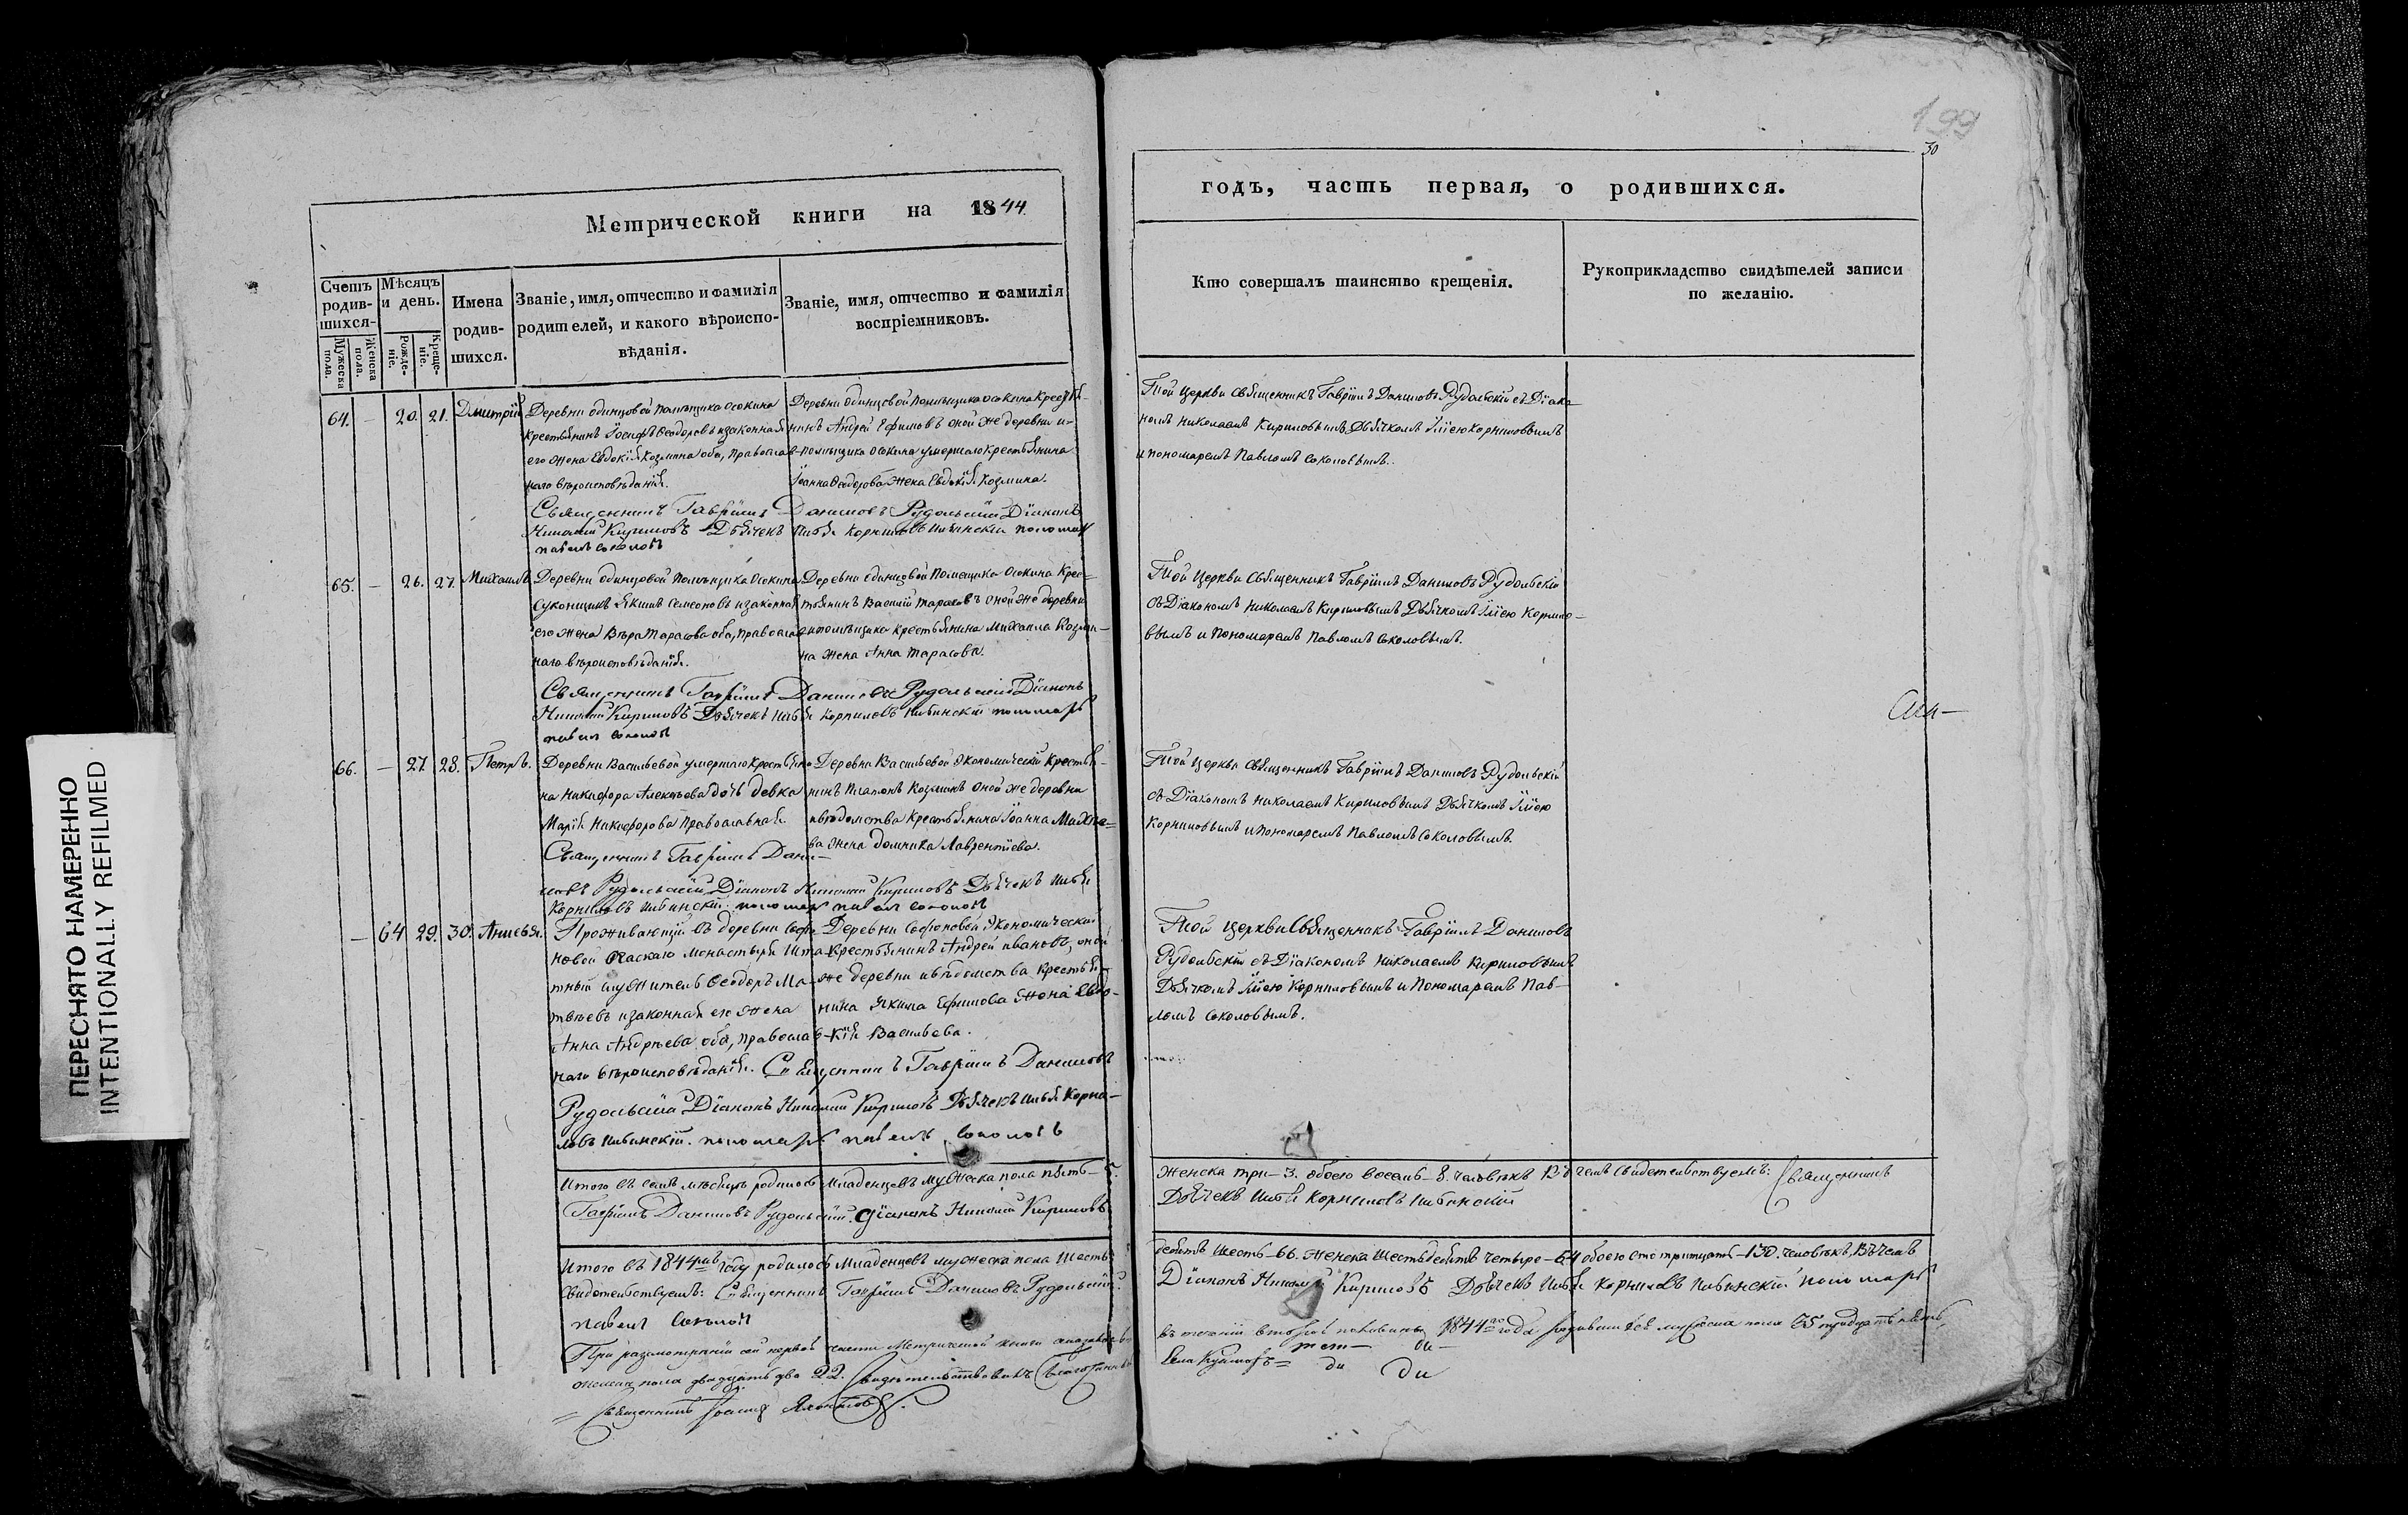 199
30
Метрической книги на 1844
годъ, часть первая, о родившихся.
Счетъ родившихся.
Мужеска пола.
Женска пола.
Мѣсяцъ и день.
Рожденіе.
Крещеніе.
Имена родившихся.
Званіе, имя, отчество и фамилія
родителей, и какого вѣроиспо-
вѣданія.
Званіе, имя, отчество и фамилія
воспріемниковъ.
Кто совершалъ таинство крещенія.
Рукоприкладство свидѣтелей записи
по желанію.
64. — 20. 21. Дмитрій
Деревни одинцовой помѣщика Осокина
крестьянинъ Іосифъ Ѳеодоровъ изаконная
его жена Евдокія Козмина оба, православ-
наго вѣроисповѣданія.
Деревни одинцовой помѣщика осокина крестья-
нинъ Андрей Ефимовъ оной же деревни и-
помѣщика осокина умершаго крестьянина
Іоанна Ѳеодорова жена Евдокія Козмина.
Той церкви священникъ Гавріилъ Даниловъ Рудольскій съ Діако-
номъ Николаемъ Кириловымъ Дьячкомъ Иліею Корниловымъ
и пономаремъ Павломъ Соколовымъ.
Священникъ Гавріилъ Даниловъ Рудольскій Діаконъ
Николай Кириловъ Дьячекъ Илья Корниловъ пономарь
павелъ соколовъ
65. — 26. 27. Михаилъ
Деревни одинцовой помѣщика Осокина
Суконщикъ Якимъ Семеновъ изаконная
его жена Вѣра Тарасова оба, православ-
наго вѣроисповѣданія.
Деревни одинцовой помещика Осокина крес-
тьянинъ Василій Тарасовъ оной же деревни
ипомѣщика крестьянина Михаила Козми-
на жена Анна Тарасова.
Той церкви Священникъ Гавріилъ Даниловъ Рудольскій
съ Діакономъ Николаемъ Кириловымъ Дьячкомъ Иліею Корнило-
вымъ и пономаремъ Павломъ Соколовымъ.
Священникъ Гавріилъ Даниловъ Рудольскій Діаконъ
Николай Кириловъ Дьячекъ Илья Корниловъ пономарь
павелъ соколовъ
66. — 27. 28. Петръ.
Деревни Васильевой умершаго крестьяни-
на Никифора Алексѣева дочь девка
Марія Никифорова православная
Деревни Васильевой Экономической крестья-
нинъ Платонъ Козминъ оной же деревни
ивѣдомства крестьянина Іоанна
жена Домника Лаврентіева.
Той церкви священникъ Гавріилъ Даниловъ Рудольскій
съ Діакономъ Николаемъ Кириловымъ Дьячкомъ Иліею
Корниловымъ и пономаремъ Павломъ Соколовымъ.
Священникъ Гавріилъ Дани-
ловъ Рудольскій Діаконъ Николай Кириловъ Дьячекъ Илья
Корниловъ пономарь павелъ соколовъ
— 64 29. 30.
Проживающій въ деревни Софо-
новой монастыря Шта-
тный служитель Ѳеодоръ Ма-
твѣевъ изаконная его жена
Анна Андрѣева оба, православ-
наго вѣроисповѣданія.
Деревни Софоновой Экономической
крестьянинъ Андрей Ивановъ, оной
же деревни ивѣдомства крестья-
нина Якима Ефимова жена Евдо-
кія Васильева.
Той церкви Священникъ Гавріилъ Даниловъ
Рудольскій съ Діакономъ Николаемъ Кириловымъ
Дьячкомъ Иліею Корниловымъ и Пономаремъ Пав-
ломъ Соколовымъ.
Священникъ Гавріилъ Даниловъ
Рудольскій Діаконъ Николай Кириловъ Дьячекъ Илья Корни-
ловъ пономарь павелъ соколовъ
Итого въ семъ мѣсяцѣ родилось младенцевъ мужеска пола пять — 5.
женска три — 3. обоего восемь — 8. человѣкъ Въ чемъ свидетельствуемъ: Священникъ
Гавріилъ Даниловъ Рудольскій. Діаконъ Николай Кириловъ
Дьячекъ Илья Корниловъ
Итого въ 1844мъ году родилось Младенцевъ мужеска пола Шесть-
десятъ шесть — 66. женска шестьдесятъ четыре — 64 обоего сто тритцать — 130. человѣкъ, Въ чемъ
Свидетельствуемъ: Священникъ Гавріилъ Даниловъ Рудольскій.
Діаконъ Николай Кириловъ Дьячекъ Илья Корниловъ пономарь
павелъ Соколовъ
При разсмотреніи сей первой части Метрической книги оказалось
въ теченіи второй половины 1844го года родившихся мужеска пола 35 тридцать пять,
женска пола двадцать два 22. Свидетельствовалъ
Священникъ
ПЕРЕСНЯТО НАМЕРЕННО
INTENTIONALLY REFILMED